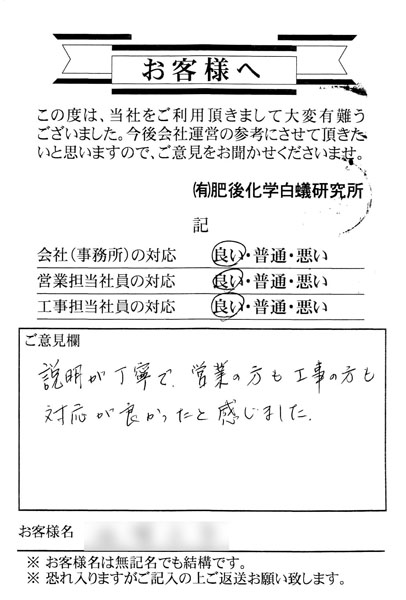 お客様へ
この度は、当社をご利用頂きまして大変有難う
ございました。今後会社運営の参考にさせて頂きた
いと思いますので、ご意見をお聞かせくださいませ。
㈲肥後化学白蟻研究所
記
会社(事務所)の対応 良い・普通・悪い
営業担当社員の対応 良い・普通・悪い
工事担当社員の対応 良い・普通・悪い
ご意見欄
説明が丁寧で、営業の方も工事の方も
対応が良かったと感じました。
お客様名
※ お客様名は無記名でも結構です。
※ 恐れ入りますがご記入の上ご返送お願い致します。